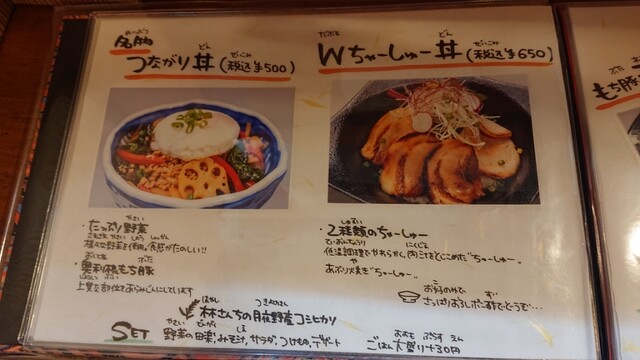 名物
つながり丼(税込¥500)
たっぷり野菜
様々な野菜を使用。食感がたのしい!!
奥利根もち豚
上質な部位をあらみじんにしています
Wちゃーしゅー丼(税込¥650)
2種類のちゃーしゅー
低温調理でやわらかく、肉汁をとじこめた"ちゃーしゅー"。
や
あぶり焼き"ちゃーしゅー"。
お好みので
さっぱりおろしポン酢でどうぞ…
林さんちの月夜野産コシヒカリ
SET 野菜の田楽、みそ汁、サラダ、つけもの、デザート
ごはん大盛り+30円
もち豚